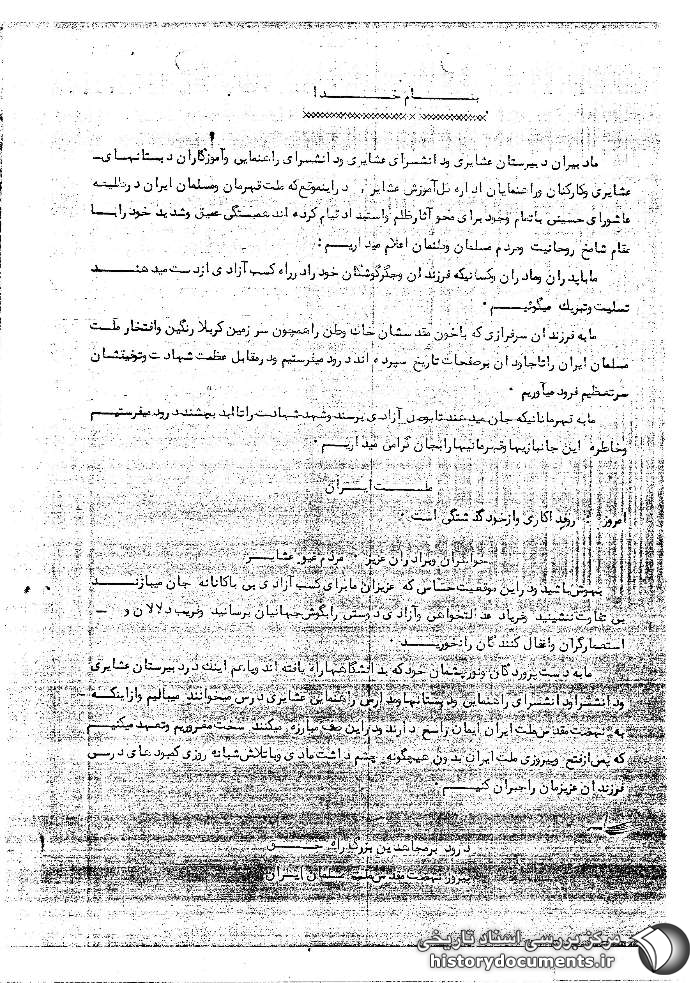 بنام خدا
ما دبیران دبیرستان عشایری ودانشسرای عشایری ودانشسرای راهنمایی وآموزگاران دبستانهای
عشایری وکارکنان وراهنمایان اداره کل آموزش عشایر , دراینموقع که ملت قهرمان ومسلمان ایران در
عاشورای حسینی باتمام وجود برای محو آثارظلم واستبداد قیام کرده اند همبستگی عمیق وشدید خود رابا
مقام شامخ روحانیت ومردم مسلمان وطنمان اعلام میداریم :
ما بایدران ومادران وکسانیکه فرزندان وجگرگوشگان خود رادرراه کسب آزادی ازدست میدهند
تسلیت وتبریك میگوئیم .
ما به فرزندان سرفرازی که باخون مقدسشان خاك وطن راهمچون سرزمین کربلا رنگین وافتخار ملت
مسلمان ایران راتاجاودان برصفحات تاریخ سپرده اند درود میفرستیم ودرمقابل عظمت شهادت
سرتعظیم فرود میآوریم .
ما به قهرمانانیکه جان میدهند تابوصل آزادی برسند وشهد شهادت راتاابد بچشند درود میفرستیم
وخاطره این جانبازیها وقهرمانیهارابجان گرامی میداریم .
ملت ایران
امروز روزفداکاری وازخودگذشتگی است .
خواهران وبرادران عزیز . مردم غیور عشایر
بهوش باشید ودراین موقعیت حساس که عزیزان مابرای کسب آزادی بی باکانه جان میبازند
بی تفاوت ننشینید وفریاد عدالتخواهی وآزادی دوستی رابگوش جهانیان برسانید وفریب دلالان و
استعمارگران واغفال کنندگان رانخورید
ما به دست پروردگان ونورچشمان خودکه بدانشگاهها راه یافته اند وباهم اینك دردبیرستان عشایری
ودانشسرا ودانشسرای راهنمایی ودبستانها ومدارس راهنمایی عشایری درس میخوانند میبالیم وازاینکه
به نهضت مقدس ملت ایران ایمان راسخ دارند ودراین صف مبارزه میکنند سخت مغروریم وتعهد میکنیم
که پس ازفتح وپیروزی ملت ایران بدون هیچگونه چشم داشت مادی وباتلاش شبانه روزی کمبودهای درسی
فرزندان عزیزمان راجبران کنیم .
درود برمجاهدین بزرگ راه حق
پیروز نهضت مقدس ملت مسلمان ایران
مرکز بررسی اسناد تاریخی
historydocuments.ir